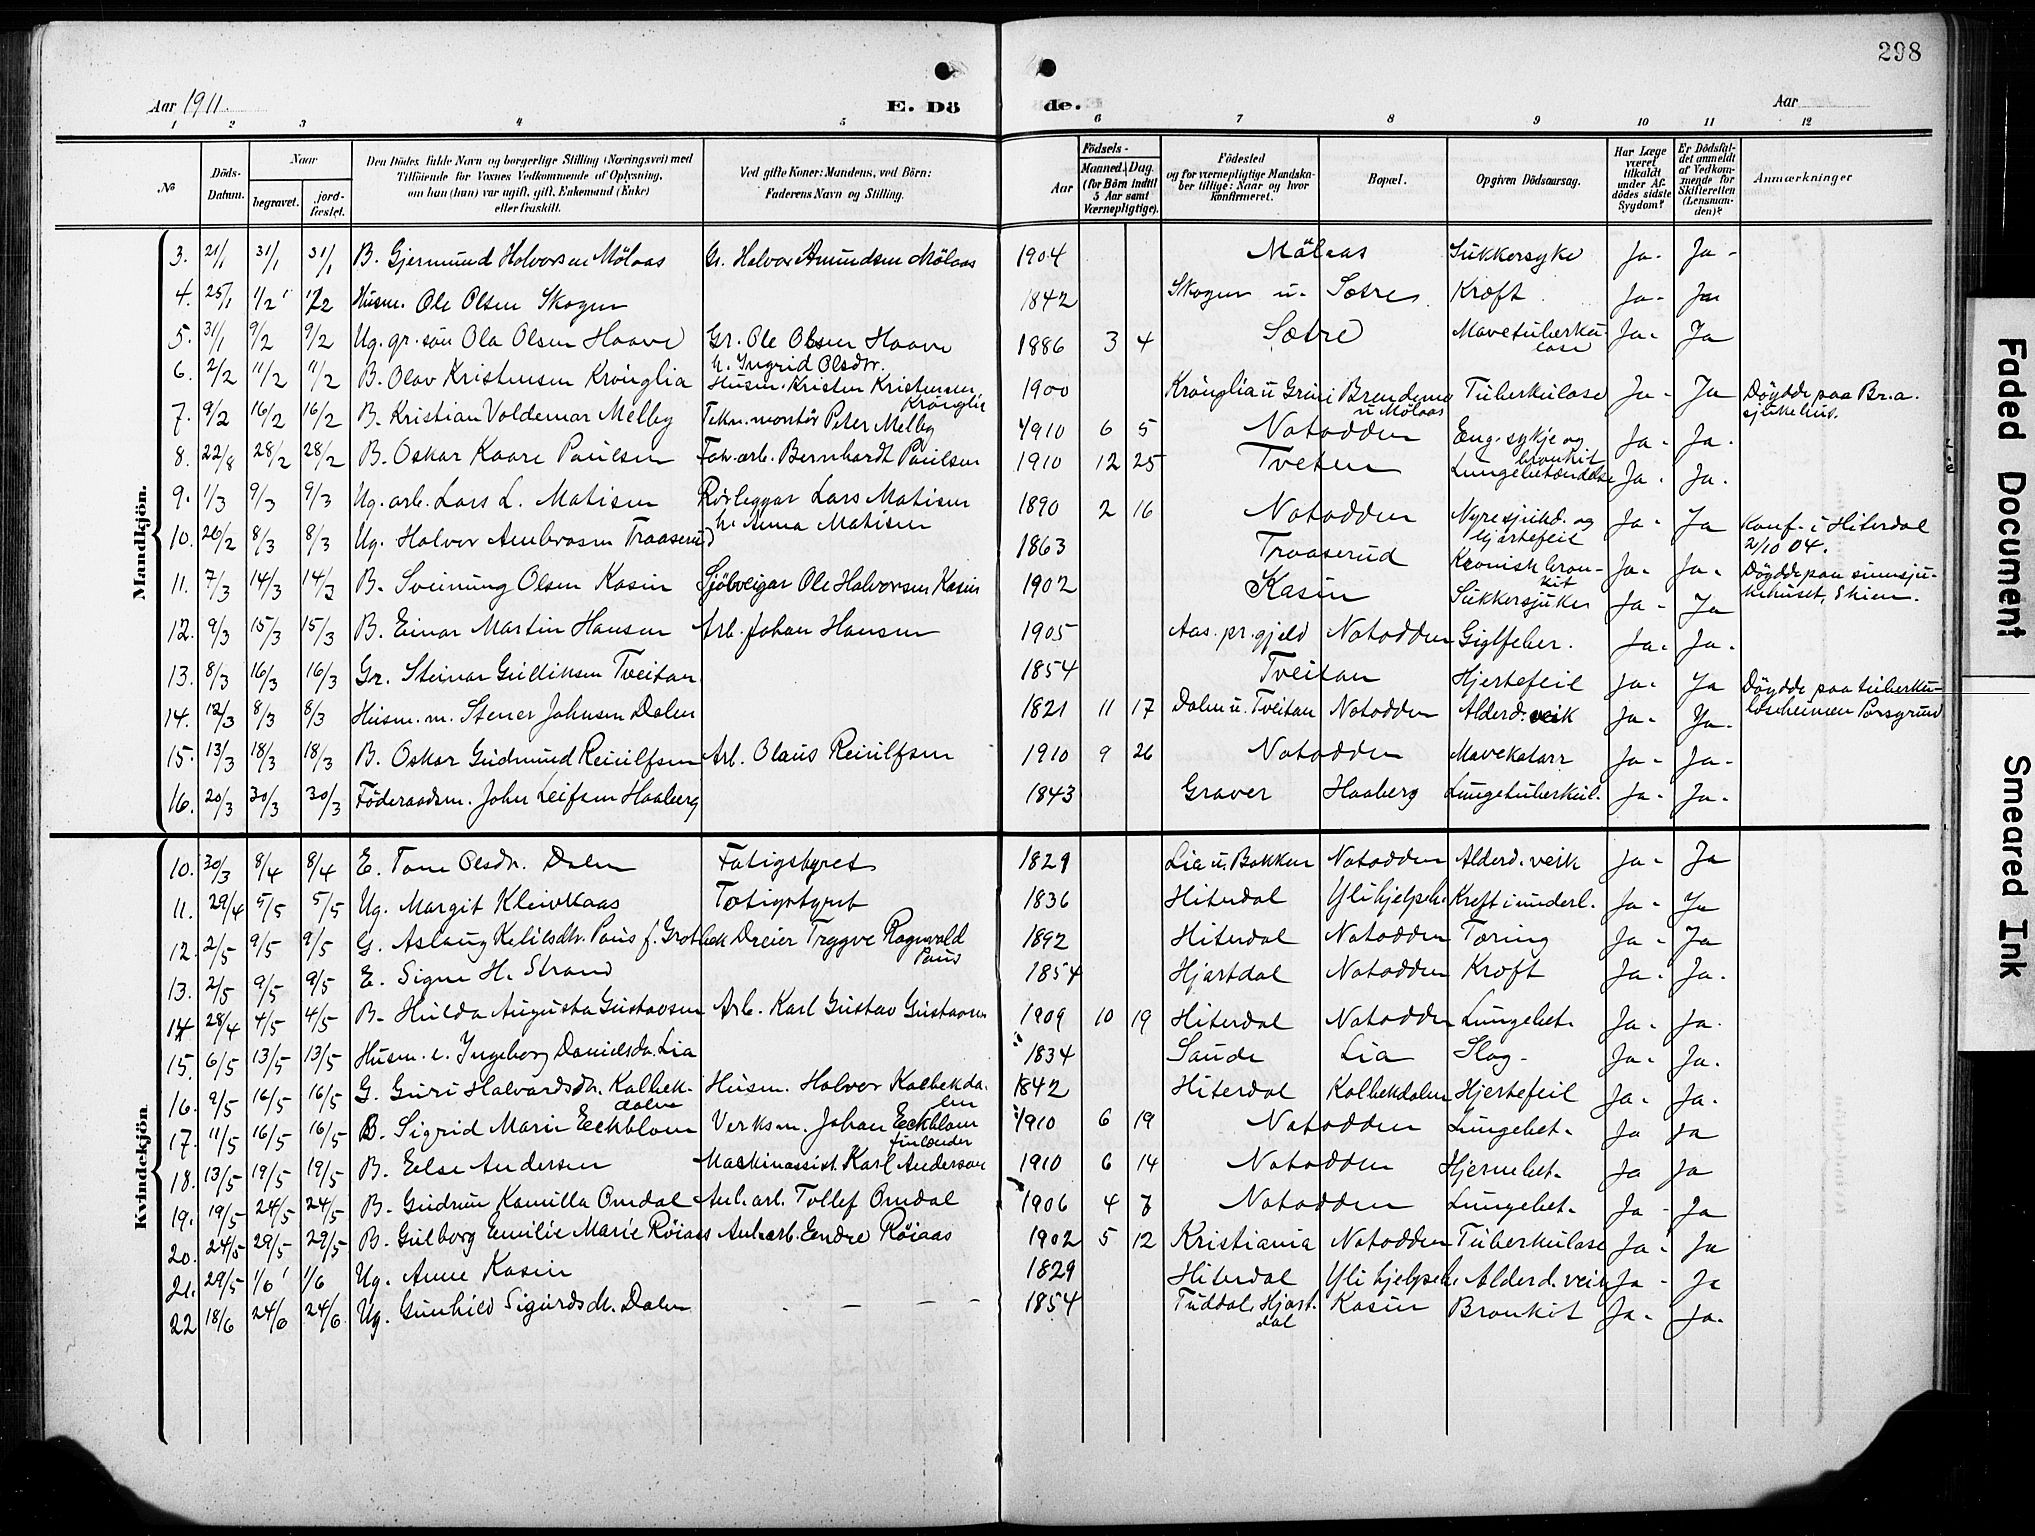 298
Aar 1911.
E. Dö de.
Aar
1 2 3 4 5 6 7 8 9 10 11 12
№
Döds-Datum.
Naar
begravet.
jord-fæstet.
Den Dödes fulde Navn og borgerlige Stilling (Næringsvei) med
Tilföiende for Voxnes Vedkommende af Oplysning,
om han (hun) var ugift, gift, Enkemand (Enke)
eller fraskilt.
Ved gifte Koner: Mandens, ved Börn:
Faderens Navn og Stilling.
Födsels-
Aar
Maaned. Dag.
(for Börn indtil
5 Aar samt
Værnepligtige).
Födested
og for værnepligtige Mandska-
ber tillige: Naar og hvor
konfirmeret.
Bopæl.
Opgiven Dödsaarsag.
Har Læge
været
tilkaldt
under Af-
dödes sidste
Sygdom?
Er Dödsfal-
det anmeldt
af Vedkom-
mende for
Skifteretten
(Lensman-
den)?
Anmærkninger
Mandkjön.
3. 21/1 31/1 31/1 B. Gjermund Halvorsen Mölaas Gr. Halvor Amundsen Mölaas 1904 Mölaas Sukkersyke Ja- Ja-
4. 25/1 1/2 1/2 Husm. Ole Olsen Skogen 1842 Skogen u. Sætre Kræft Ja- Ja
5. 31/1 9/2 9/2 Ug. gr. sön Ola Olsen Haave Gr. Ole Olsen Haave 1886 3 4 Sætre Mavetuberku-lose Ja- Ja
h. Ingrid Olsdr.
6. 2/2 11/2 11/2 B. Olav Kristensen Krönglia Husm. Kristen Kristensen Krönglia 1900 Krönglia u Grini Brendemo u Mölaas Tuberkulose Ja- Ja Döydde paa Br.a. sjukehus.
7. 9/2 16/2 16/2 B. Kristian Valdemar Melby Tekn. montör Peter Melby 1910 6 5 Notodden Eng. sykje og bronkit Ja- Ja.
8. 22/8 28/2 28/2 B. Oskar Kaare Paulsen Fab. arb. Bernhardt Paulsen 1910 12 25 Tveten Lungebetændelse Ja- Ja.
9. 1/3 9/3 9/3 Ug. arb. Lars L. Matisen Rörleggar Lars Matisen 1890 2 16 Notodden Nyresjukd. og hjertefeil Ja- Ja Konf. i Hiterdal 2/10 04.
h. Anna Matisen
10. 26/2 8/3 8/3 Ug. Halvor Ambrosen Traaserud 1863 Traaserud Kronisk bron-kit Ja- Ja- Döydde paa sinnsju-kehuset, Skien.
11. 7/3 14/3 14/3 B. Sveinung Olsen Kasin Sjölveigar Ole Halvorsen Kasin 1902 Kasin Sukkersjuke Ja- Ja
12. 9/3 15/3 15/3 B. Einar Martin Hansen Arb. Johan Hansen 1905 Aas. pr. gjeld Notodden Gigtfeber. Ja- Ja.
13. 8/3 16/3 16/3 Gr. Steinar Gulliksen Tveitan 1854 Tveitan Hjertefeil Ja- Ja Döydde paa tuberku-loseheimen Porsgrund
14. 12/3 8/3 8/3 Husm. m. Stener Johnsen Dalen 1821 11 17 Dalen u. Tveitan Notodden Alderd. veik Ja- Ja-
15. 13/3 18/3 18/3 B. Oskar Gudmund Reiulfsen Arb. Olaus Reiulfsen 1910 9 26 Notodden Mavekatarr Ja- Ja-
16. 20/3 30/3 30/3 Föderaadsm. John Leifsen Haaberg 1843 Graver Haaberg Lungetuberkul. Ja- Ja.
Kvindekjön
10. 30/3 8/4 8/4 E. Tone Olsdr. Dalen Fatigstyret 1829 Lia u. Bakken Notodden Alderd. veik Ja- Ja
11. 29/4 5/5 5/5 Ug. Margit Kleivkaas Fatigstyret 1836 Hiterdal Yli hjelpeh. Kreft i underl. Ja- Ja
12. 2/5 9/5 9/5 G. Aslaug Ketilsdr. Paus f. Grotbæk Dreier Trygve Ragnvald Paus 1892 Hiterdal Notodden Tæring Ja- Ja
13. 2/5 9/5 9/5 E. Signe H. Strand 1854 Hjartdal Notodden Kræft Ja- Ja.
14 28/4 4/5 4/5 B. Hulda Augusta Gustavsen Arb. Karl Gustav Gustavsen 1909 10 19 Hiterdal Notodden Lungebet. Ja- Ja.
15. 6/5 13/5 13/5 Husm. e. Ingeborg Danielsdr. Lia 1834 Saude Lia Slag- Ja- Ja.
16. 9/5 16/5 16/5 G. Guri Halvardsdr. Kalbek-dalen Husm. Halvor Kalbekda-len 1842 Hiterdal Kalbekdalen Hjertefeil Ja- Ja.
17. 11/5 16/5 16/5 B. Sigrid Marie Eckblom Verksm. Johan Eckblom finlænder 1910 6 19 Notodden Lungebet. Ja Ja
18. 13/5 19/5 19/5 B. Else Andersen Maskinassist. Karl Anderson 1910 6 14 Notodden Hjernebet. Ja Ja
19. 19/5 24/5 24/5 B. Gudrun Kamilla Omdal Anl. arb. Tollef Omdal 1906 4 7 Notodden Lungebet. Ja- Ja
20. 24/5 29/5 29/5 B. Gulborg Emilie Marie Röiaas Anl. arb. Endre Röiaas 1902 5 12 Kristiania Notodden Tuberkulose Ja- Ja
21. 29/5 1/6 1/6 Ug. Anne Kasin 1829 Hiterdal Yli hjelpeh. Alderd. veik Ja- Ja
22 18/6 24/6 24/6 Ug. Gunhild Sigurdsdr. Dalen 1854 Tuddal, Hjart-dal Kasin Bronkit Ja- Ja.
Faded Document
Smeared Ink